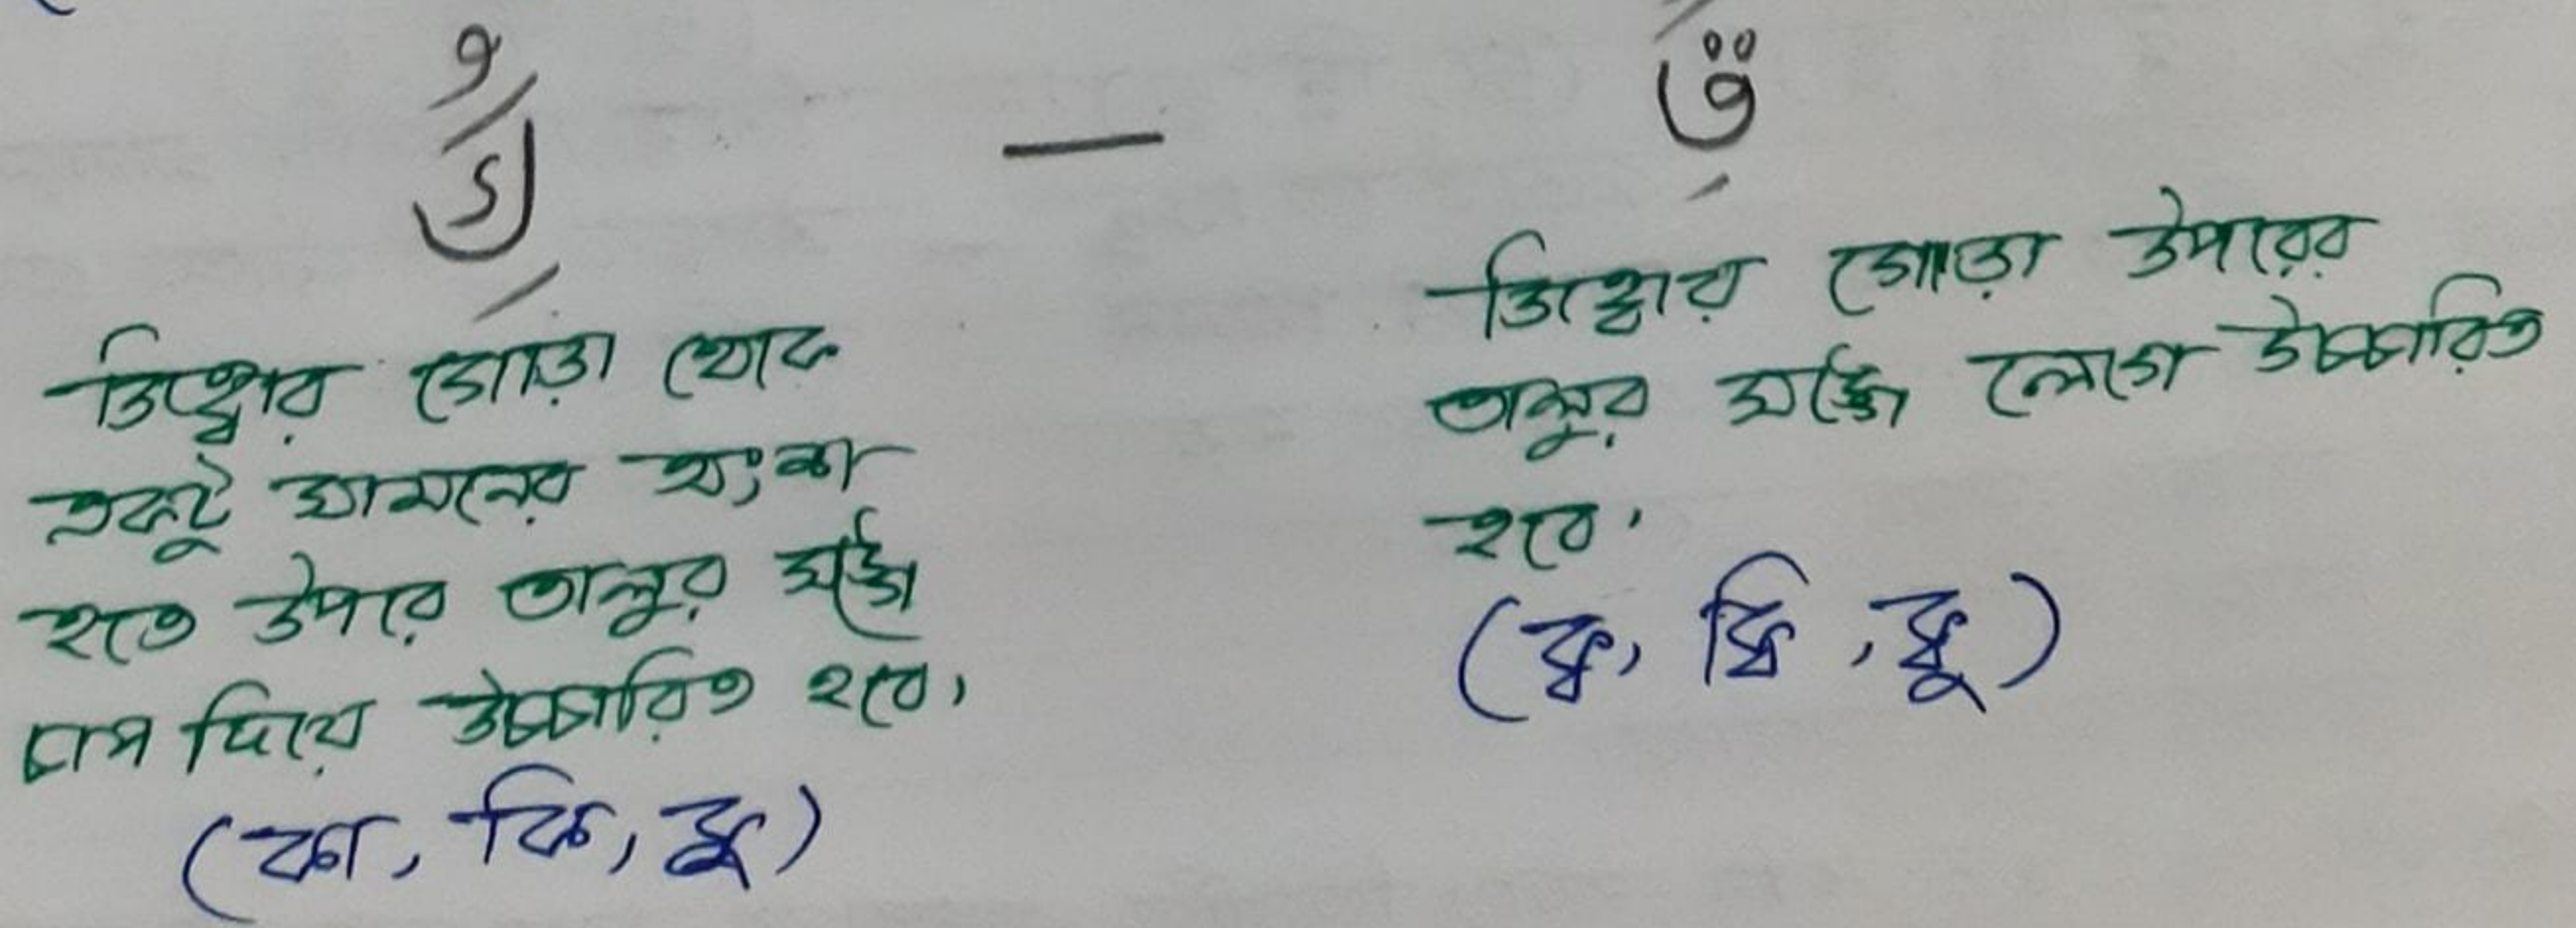 كَُِ — قَُِ
জিহ্বার গোড়া থেকে
একটু সামনের অংশ
হতে উপরে তালুর সঙ্গে
চাপ দিয়ে উচ্চারিত হবে,
(কা, কি, কু)
জিহ্বার গোড়া উপরের
তালুর সঙ্গে লেগে উচ্চারিত
হবে,
(ক্ব, ক্বি, ক্বু)